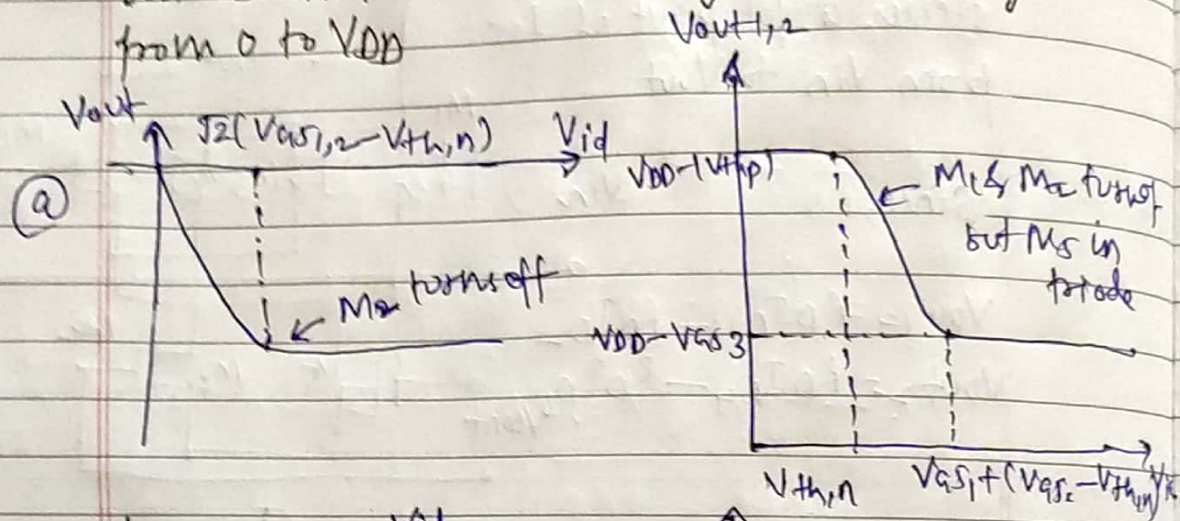 from 0 to VDD
Vout1,2
Vout
√2(VGS1,2-Vth,n)
Vid
VDD-|Vthp|
M1 & M2 turn off
but M5 in
triode
ⓐ
M2 turns off
VDD-VGS3
Vth,n
VGS1+(VGS2-Vth,n)